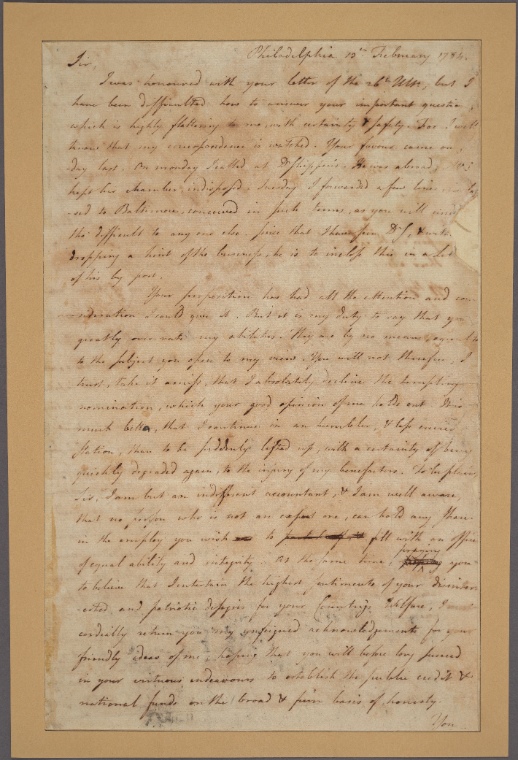 Philadelphia 13th February 1784.
Sir,
I was honoured with your letter of the 26th Ulto, but I
have been difficulted how to answer your important question,
which is highly flattering to me, with certainty & safety. For I
know that my correspondence is watched. Your favour came on
day last. On monday I called at Dr Shippen's. He was abroad,
kept his chamber indisposed, tuesday I forwarded a few lines
to Baltimore, conceived in such terms, as you will
tho' difficult to any one else. Since that I have seen Dr S, & without
dropping a hint of the business, he is to inclose this in a letter
of his by post.
Your proposition has had all the attention and con-
sideration I could give it. But it is my duty to say that you
greatly over-rate my abilities. They are by no means equal
to the subject you open to my view. You will not therefore, I
trust, take it amiss, that I absolutely decline the tempting
nomination, which your good opinion of me holds out. 
much better, that I continue in an humbler, & less
station, than to be suddenly lifted up, with a certainty of being
quickly degraded again, to the injury of my benefactors. To be plain
sir, I am but an indifferent accountant, & I am well aware,
that no person who is not an expert one, can hold any
in the employ you wish to fill with an officer
of equal ability and integrity. At the same time, praying you
to believe that I entertain the highest sentiments of your disinter-
ested and patriotic designs for your Country's Welfare, I
cordially return you my unfeigned acknowledgements for your
friendly ideas of me, hoping that you will before long succeed
in your virtuous endeavours to establish the public credit &
national funds on the broad & firm basis of honesty.
You